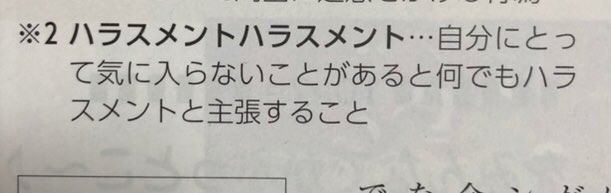 ※2 ハラスメントハラスメント…自分にとっ
て気に入らないことがあると何でもハラ
スメントと主張すること